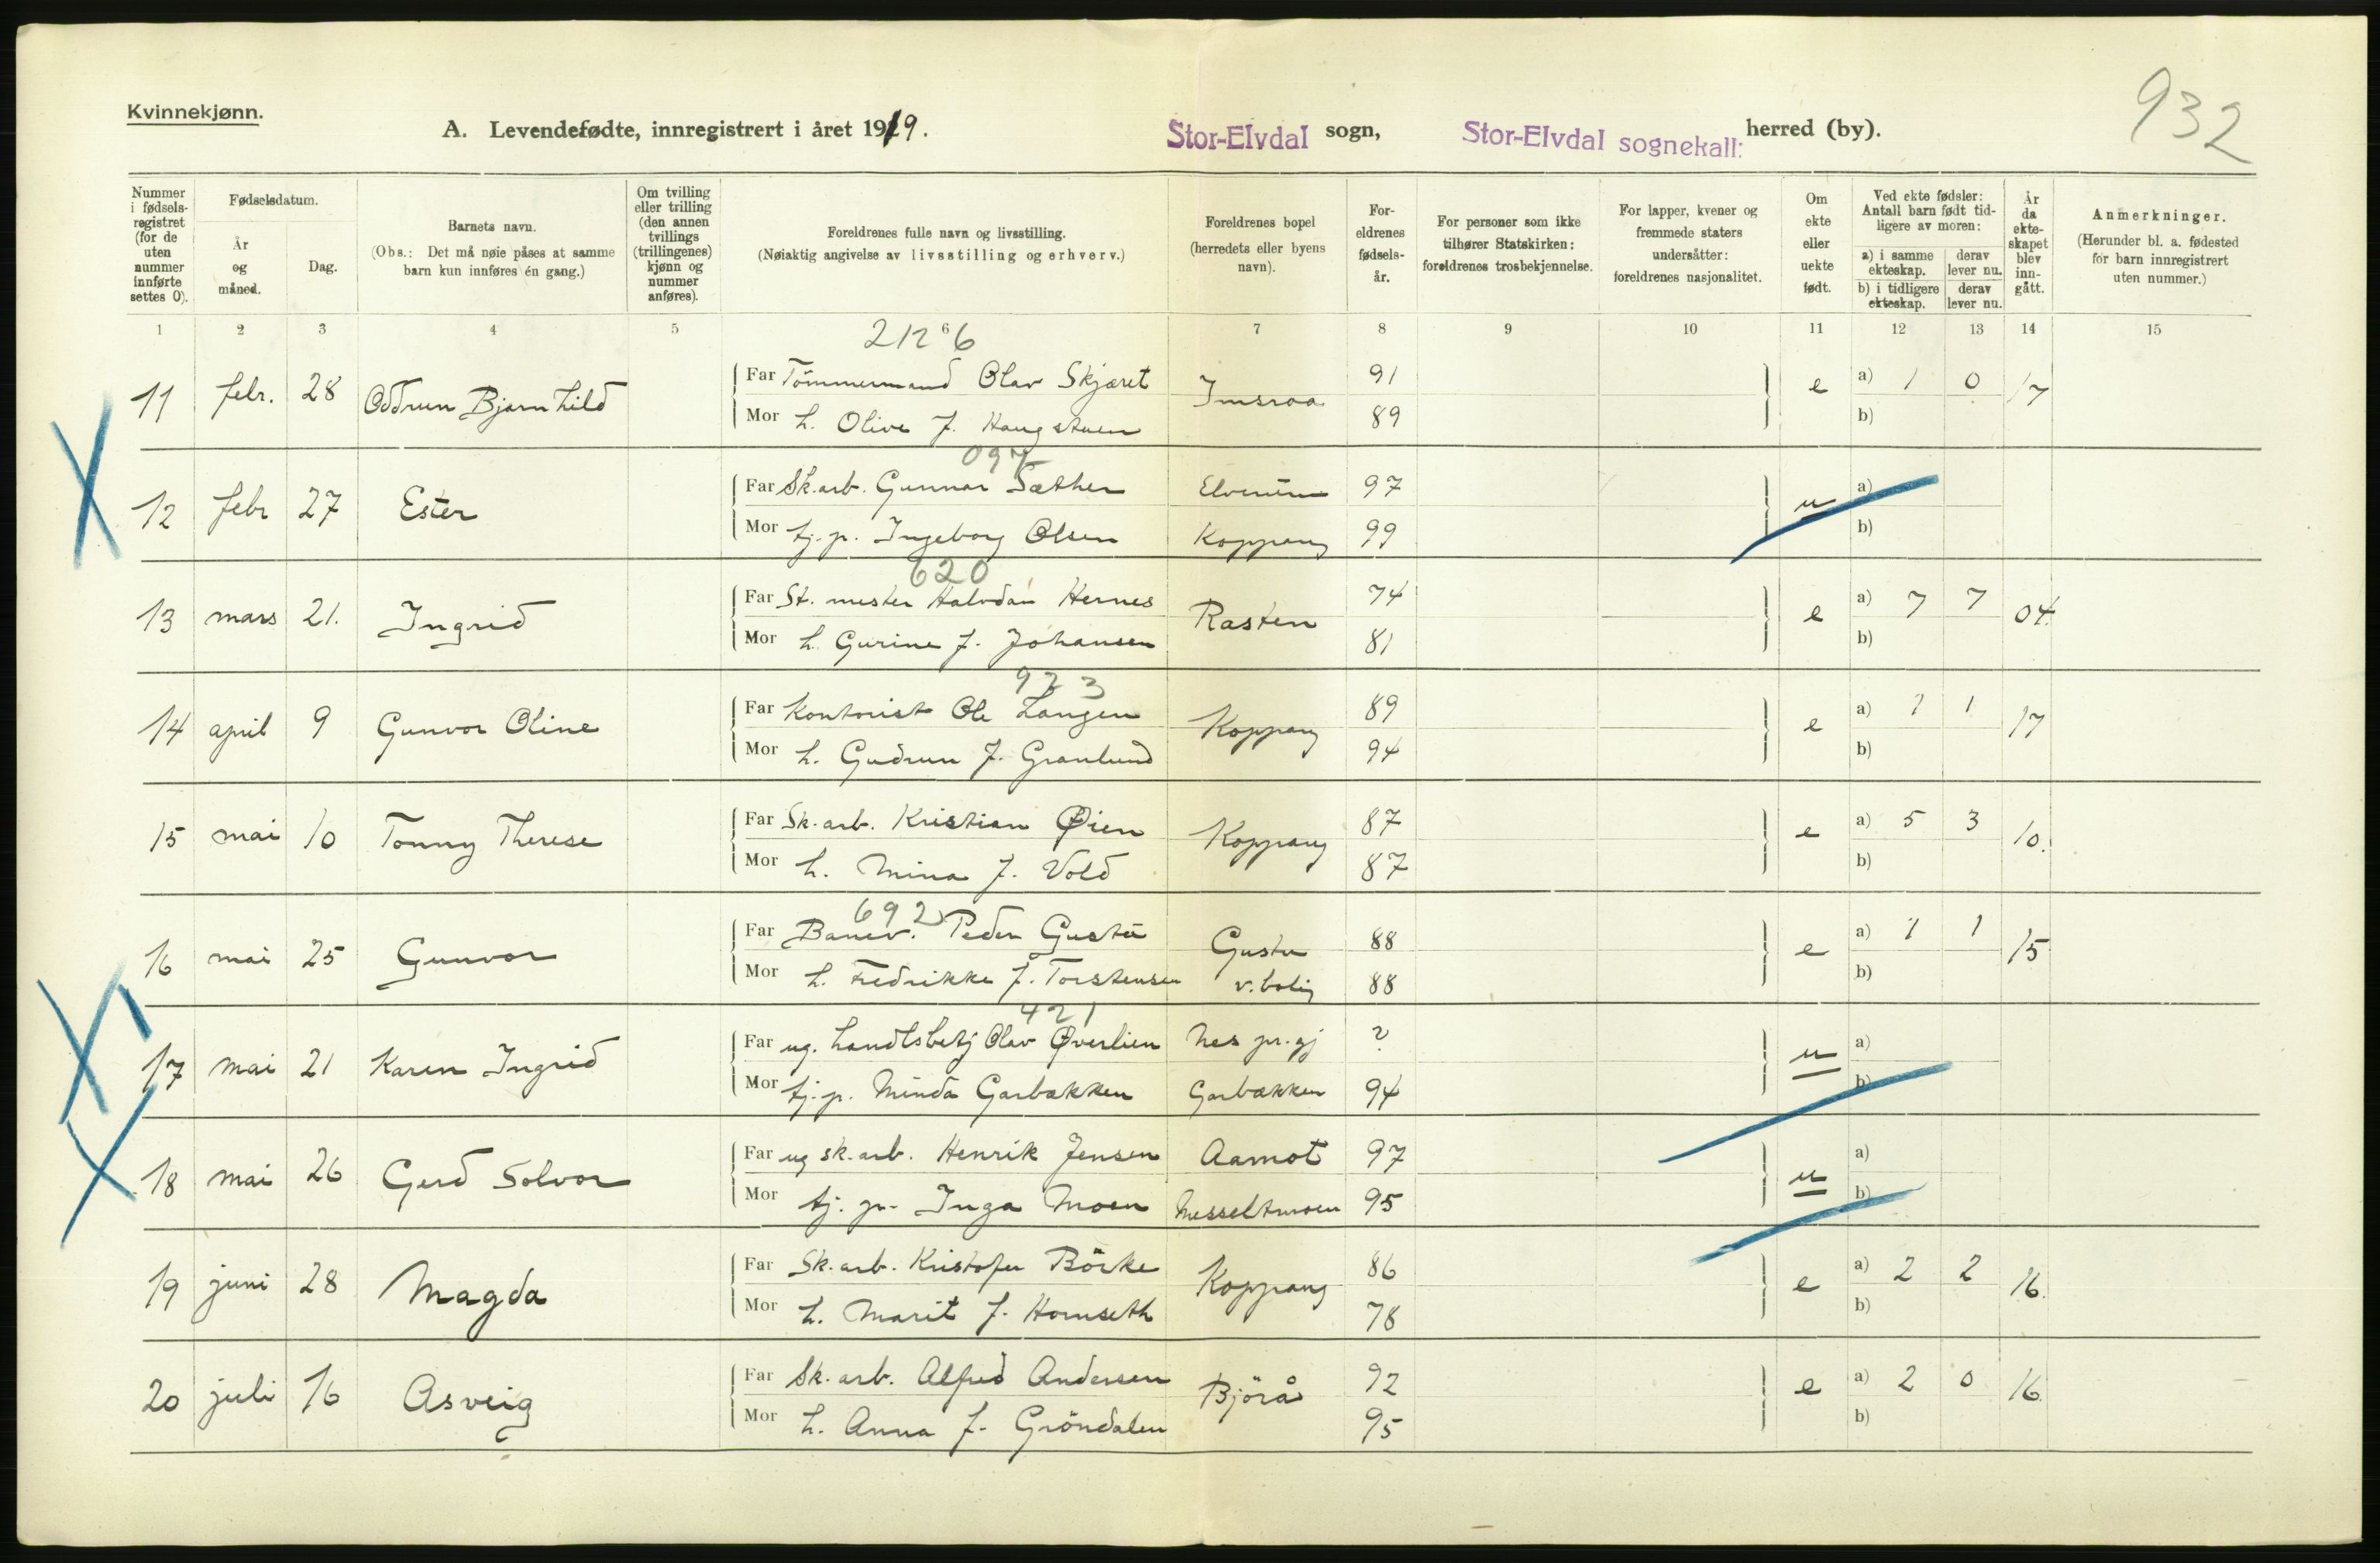 Kvinnekjønn.
A. Levendefødte, innregistrert i året 1919. Stor-Elvdal sogn, Stor-Elvdal sognekall: herred (by).
932
Nummer i fødsels-registret (for de uten nummer innførte settes 0).
Fødselsdatum.
År og måned.
Dag.
Barnets navn.
(Obs.: Det må nøie påses at samme barn kun innføres én gang.)
Om tvilling eller trilling (den annen tvillings (trillingenes) kjønn og nummer anføres).
Foreldrenes fulle navn og livsstilling.
(Nøiaktig angivelse av livsstilling og erhverv.)
Foreldrenes bopel (herredets eller byens navn).
For-eldrenes fødsels-år.
For personer som ikke tilhører Statskirken: foreldrenes trosbekjennelse.
For lapper, kvener og fremmede staters undersåtter: foreldrenes nasjonalitet.
Om ekte eller uekte født.
Ved ekte fødsler: Antall barn født tid-ligere av moren:
a) i samme ekteskap. derav lever nu.
b) i tidligere ekteskap. derav lever nu.
År da ekte-skapet blev inn-gått.
Anmerkninger.
(Herunder bl. a. fødested for barn innregistrert uten nummer.)
1 2 3 4 5 6 7 8 9 10 11 12 13 14 15
2126
11 febr. 28 Oddrun Bjarnhild Far Tömmermand Olav Skjæret Imsroa 91 e a) 1 0 17
Mor h. Olive f. Haugstuen 89 b)
097
12 febr 27 Ester Far Sk.arb. Gunnar Sæther Elverum 97 u a)
Mor tj.p. Ingeborg Olsen Koppang 99 b)
620
13 mars 21. Ingrid Far St. mester Halvdan Hernes Rasten 74 e a) 7 7 04
Mor h. Gurine f. Johansen 81 b)
923
14 april 9 Gunvor Oline Far Kontorist Ole Langen Koppang 89 e a) 1 1 17
Mor h. Gudrun f. Granlund 94 b)
15 mai 10 Tonny Therese Far Sk.arb. Kristian Øien Koppang 87 e a) 5 3 10.
Mor h. Mina f. Vold 87 b)
692
16 mai 25 Gunvor Far Banev. Peder Gustu Gustu 88 e a) 1 1 15
Mor h. Fredrikke f. Torstensen v.bolig 88 b)
421
17 mai 21 Karen Ingrid Far ug. handlsbetj Olav Øverlien Nes pr.gj ? u a)
Mor tj.p. Minda Garbækken Garbækken 94 b)
18 mai 26 Gerd Solvor Far ug sk.arb. Henrik Jensen Aamot 97 u a)
Mor tj.p. Inga Moen 95 b)
19 juni 28 Magda Far Sk.arb. Kristofer Börke Koppang 86 e a) 2 2 16.
Mor h. Marit f. Hornseth 78 b)
20 juli 16 Asveig Far Sk.arb. Alfred Andersen Björå 92 e a) 2 0 16
Mor h. Anna f. Gröndalen 95 b)